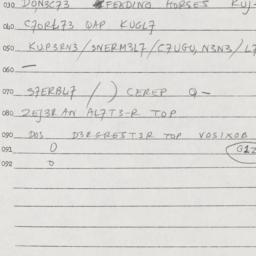 030 DON3C73 FEEDING HORSES KUJ-
040 C7ORL73 QAP KUGL7
050 KUPSRN3/SNERM3L7/C7UGU,N3N3/L7
060 —
070 S7ERBL7 /) CEREP Q-
080 2EJ3RAN AL7T3-R TOP
090 DOS D3RGREST3R TOP VOSIXOB
091 0 G12
092 0